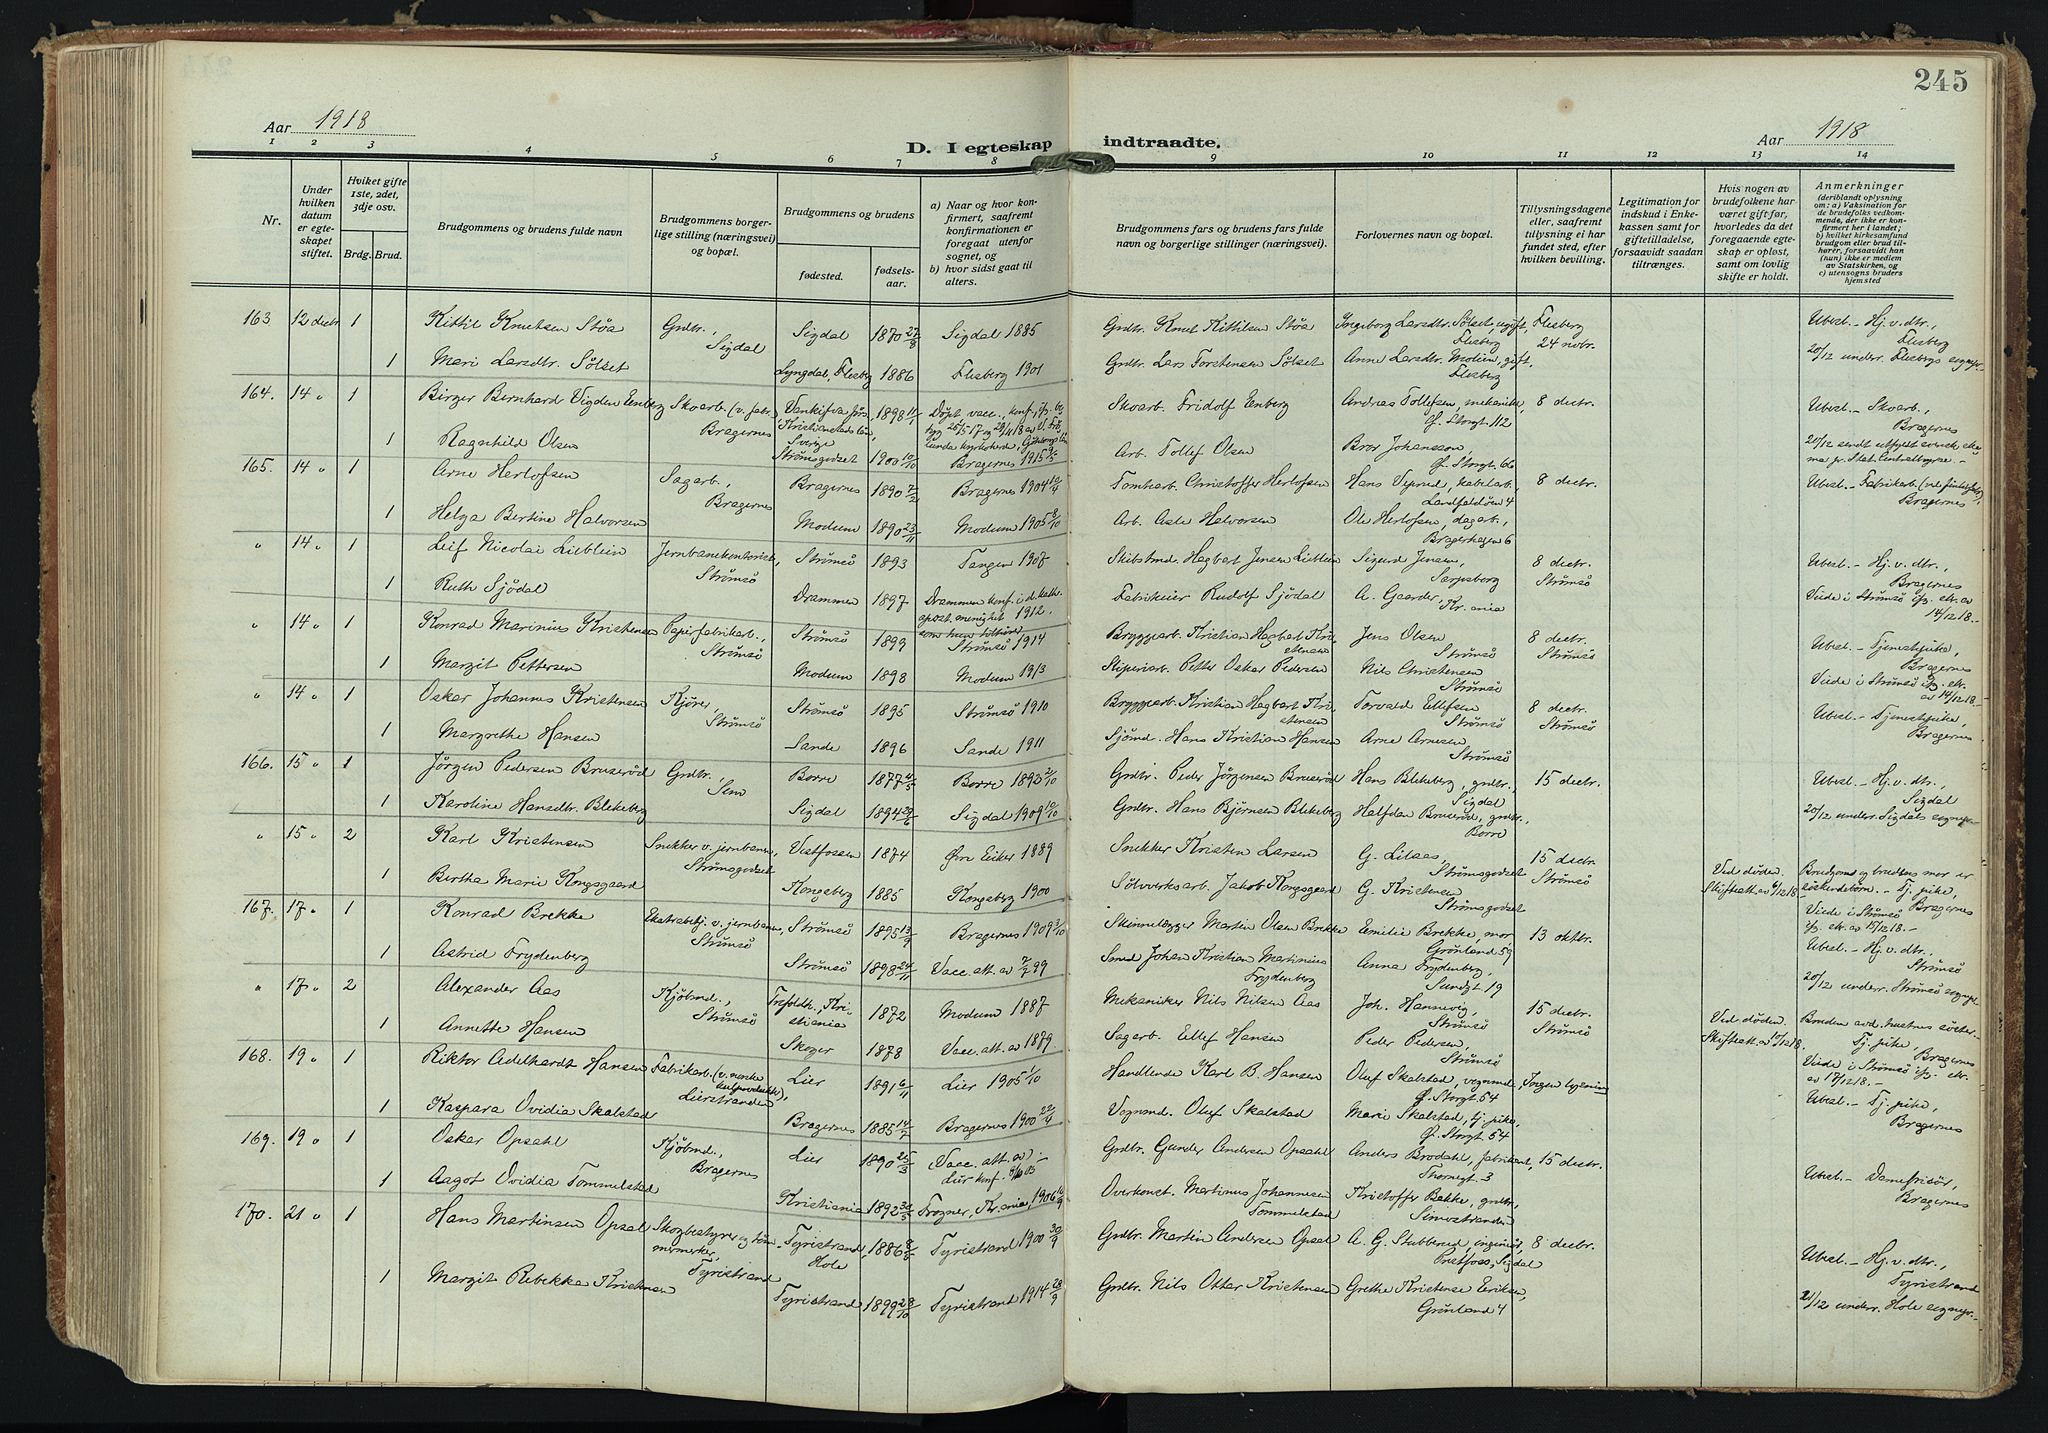 245
Aar 1918
D. I egteskap indtraadte.
Aar 1918
1 2 3 4 5 6 7 8 9 10 11 12 13 14
Nr.
Under hvilken datum er egteskapet stiftet.
Hviket gifte 1ste, 2det, 3dje osv.
Brdg. Brud.
Brudgommens og brudens fulde navn
Brudgommens borgerlige stilling (næringsvei) og bopæl.
Brudgommens og brudens
fødested.
fødselsaar.
a) Naar og hvor konfirmert, saafremt konfirmationen er foregaat utenfor sognet, og
b) hvor sidst gaat til alters.
Brudgommens fars og brudens fars fulde navn og borgerlige stillinger (næringsvei).
Forlovernes navn og bopæl.
Tillysningsdagene eller, saafremt tillysning ei har fundet sted, efter hvilken bevilling.
Legitimation for indskud i Enkekassen samt for giftetilladelse, forsaavidt saadan tiltrænges.
Hvis nogen av brudefolkene har været gift før, hvorledes da det foregaaende egteskap er opløst, samt om lovlig skifte er holdt.
Anmerkninger
(deriblandt oplysning om: a) Vaksination for de brudefolks vedkommende, der ikke er konfirmert her i landet; b) hvilket kirkesamfund brudgom eller brud tilhører, forsaavidt han (hun) ikke er medlem av Statskirken, og c) utensogns bruders hjemsted
163. 12 decbr. 1 Kittil Knutsen Støa Grdbr., Sigdal Sigdal 1870 27/8 Sigdal 1885 Grdbr. Knut Kittilsen Støa Ingeborg Larsdtr. Sølset, ugift, Flesberg Flesberg 24 novbr. Ubesl. - Hj. v. dtr., Flesberg
1 Mari Larsdtr. Sølset Lyngdal, Flesberg 1886 Flesberg 1901 Grdbr. Lars Torstensen Sølset Anne Larsdtr. Molien, gift, Flesberg 20/12 underr. Flesbergs sognepr.
164. 14 " 1 Birger Bernhard Vigden Enberg Skoarb. (v. fabr.) Bragernes Kristianstads län, Sverige 1898 11/1 Skoarb. Fridolf Enberg Andreas Tollefsen, mekaniker, Ø. Storgt. 112 8 decbr. Ubesl. - Skoarb., Bragernes
1 Ragnhild Olsen Strømsgodset 1900 10/10 Bragernes 1915 Arb. Tollef Olsen Bror Johansson, Ø. Storgt. 66
165. 14 " 1 Arne Herlofsen Sagarb., Bragernes Bragernes 1890 7/2 Bragernes 1904 10/4 Tomtarb. Christoffer Herlofsen Hans Viprud, kabelarb., Landfaldøen 4 8 decbr. Ubesl. - Fabrikarb. Bragernes
1 Helga Bertine Halvorsen Modum 1890 23/11 Modum 1905 8/10 Arb. Asle Halvorsen Ole Herlofsen, dagarb., Bragerhagen 6
" 14 " 1 Leif Nicolai Lieblein Jernbanekontorist, Strømsø Strømsø 1893 Tangen 1907 Skibstmd. Hagbart Jensen Lieblein Sigurd Jensen, Sarpsborg 8 decbr. Strømsø Ubesl. - Hj. v. dtr., Bragernes
1 Ruth Sjödal Drammen 1897 Drammen konf. i d. kath. apost. menighet 1912. Fabrikeier Rudolf Sjödal A. Gaarder, Kr.ania Viede i Strømsø ifg. atr. av 14/12 18. -
" 14 " 1 Konrad Marinius Kristensen Papirfabrikarb., Strømsø Strømsø 1893 Strømsø 1914 Bryggearb. Kristian Hagbart Kristensen Jens Olsen Strømsø 8 decbr. Strømsø Ubesl. - Tjenestpike, Bragernes
1 Margit Pettersen Modum 1898 Modum 1913 Sliperiarb. Petter Oskar Pedersen Nils Christensen Strømsø Viede i Strømsø ifg. atr. av 14/12 18. -
" 14 " 1 Oskar Johannes Kristensen Kjører, Strømsø Strømsø 1895 Strømsø 1910 Bryggearb. Kristian Hagbart Kristensen Torvald Ellefsen Strømsø 8 decbr. Strømsø Ubesl. - Tjenestpike, Bragernes
1 Margrethe Hansen Sande 1896 Sande 1911 Sjømd. Hans Kristian Hansen Arne Arnesen Strømsø
166. 15 " 1 Jørgen Pedersen Bruserød Grdbr., Sem Borre 1877 4/5 Borre 1893 2/10 Grdbr. Peder Jørgensen Bruserød Hans Blekeberg, grdbr., Sigdal 15 decbr. Ubesl. - Hj. v. dtr., Sigdal
1 Karoline Hansdtr. Blekeberg Sigdal 1894 29/6 Sigdal 1909 10/10 Grdbr. Hans Bjørnsen Blekeberg Halfdan Bruserød, grdbr., Borre 20/12 underr. Sigdals sognepr.
" 15 " 2 Karl Kristensen Snekker v. jernbanen, Strømsgodset Vestfossen 1874 Øvre Eiker 1889 Snekker Kristen Larsen G. Lilaas, Strømsgodset 15 decbr. Strømsø Ved døden. Skifteatt. av 6/12 18. Brudgoms og brudens mor er søskendebørn. - Tj. pike, Bragernes
1 Bertha Marie Kongsgaard Kongsberg 1885 Kongsberg 1900 Sølvverksarb. Jakob Kongsgaard G. Kristensen Strømsgodset Viede i Strømsø ifg. atr. av 15/12 18. -
167. 17 " 1 Konrad Brekke Ekstrabetj. v. jernbanen, Strømsø Strømsø 1895 13/9 Bragernes 1909 3/10 Skinnelægger Martin Olsen Brekke Emilie Brekke, mor, Grønland 59 13 oktbr. Ubesl. - Hj. v. dtr., Strømsø
1 Astrid Frydenberg Strømsø 1898 24/11 Vacc. att. av 7/2 99 Smed Johan Kristian Martinius Frydenberg Anna Frydenberg, Sundgt. 19 20/12 underr. Strømsø sognepr.
" 17 " 2 Alexander Aas Kjöbmd., Strømsø Trefoldh., Kristiania 1872 Modum 1887 Mekaniker Nils Nilsen Aas Joh. Hannevig, Strømsø 15 decbr. Strømsø Ved døden. Skifteatt. av 17/12 18. Bruden avd. hustrus søster. Tj. pike, Bragernes
1 Annette Hansen Skoger 1878 Vacc. att. av 1879. Sagarb. Ellef Hansen Peder Pedersen, Strømsø Viede i Strømsø ifg. atr. av 17/12 18. -
168. 19 " 1 Riktor Adelhardt Hansen Fabrikarb. Lierstranden Lier 1891 6/11 Lier 1905 1/10 Handlende Karl B. Hansen Oluf Skalstad, vognmd. Ø. Storgt. 54 Ingen lysning Ubesl. - Tj. pike, Bragernes
1 Kaspara Ovidia Skalstad Bragernes 1885 14/7 Bragernes 1900 22/4 Vognmd. Oluf Skalstad Marie Skalstad, tj. pike, Ø. Storgt. 54
169. 19 " 1 Oskar Opsahl Kjöbmd., Bragernes Lier 1890 25/3 (Vacc. att. av) - Lier konf. 8/10 05 Grdbr. Gunder Andersen Opsahl Anders Brodahl, fabrikant, Thornegt. 3 15 decbr. Ubesl. - Damefrisør, Bragernes
1 Aagot Ovidia Tommelstad Kristiania 1892 30/5 Frogner, Kr.ania, 1906 16/9 Overkonst. Martinus Johannesen Tommelstad Kristoffer Bakke, grdbr., Simostranden
170. 21 " 1 Hans Martinsen Opsal Skogbestyrer og tømmermerker, Tyristrand Tyristrand, Hole 1886 8/5 Tyristrand 1900 30/9 Grdbr. Martin Andersen Opsal A. G. Stubberud, ingeniør, Prestfoss, Sigdal 8 decbr. Ubesl. - Hj. v. dtr., Tyristrand
1 Margit Rebekka Kristensen Tyristrand 1899 28/10 Tyristrand 1914 28/9 Grdbr. Nils Otter Kristensen Grethe Kristense Eriksen, Grønland 4 21/12 underr. Hole sognepr. -